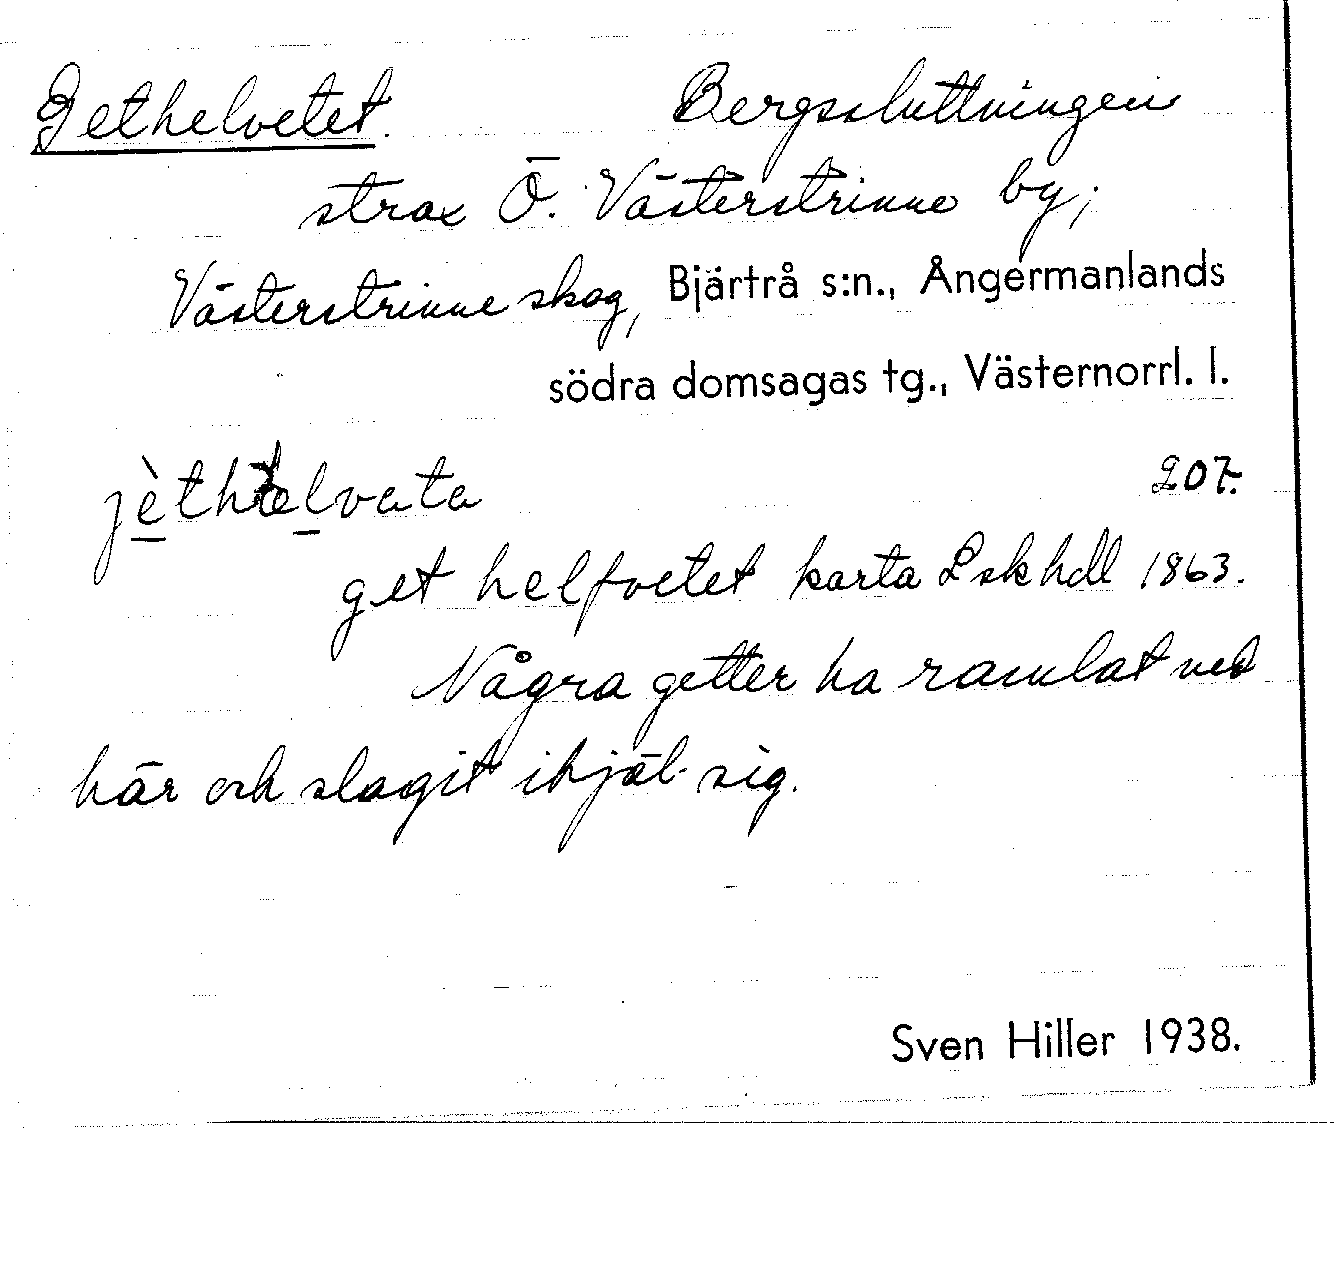 Gethelvetet. Bergssluttningen
strax Ö. Västerstrinne by;
Västerstrinne skog, Bjärtrå s:n., Ångermanlands
södra domsagas tg., Västernorrl. l.
jèthelvata 207.
get helfvetet karta Lskhdl 1863.
Några getter ha ramlat ned
här och slagit ihjäl sig.
Sven Hiller 1938.